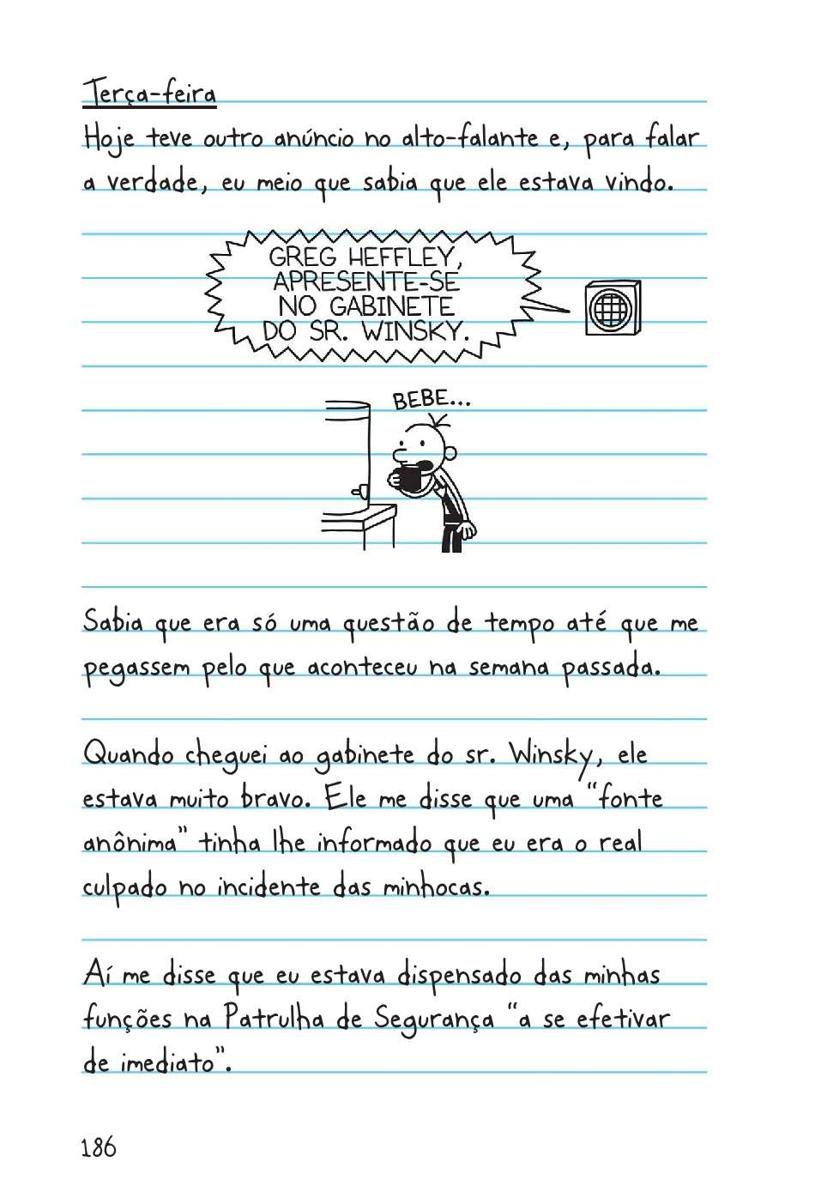 Terça-feira
Hoje teve outro anúncio no alto-falante e, para falar
a verdade, eu meio que sabia que ele estava vindo.
GREG HEFFLEY,
APRESENTE-SE
NO GABINETE
DO SR. WINSKY.
BEBE...
Sabia que era só uma questão de tempo até que me
pegassem pelo que aconteceu na semana passada.
Quando cheguei ao gabinete do sr. Winsky, ele
estava muito bravo. Ele me disse que uma “fonte
anônima” tinha lhe informado que eu era o real
culpado no incidente das minhocas.
Aí me disse que eu estava dispensado das minhas
funções na Patrulha de Segurança “a se efetivar
de imediato”.
186